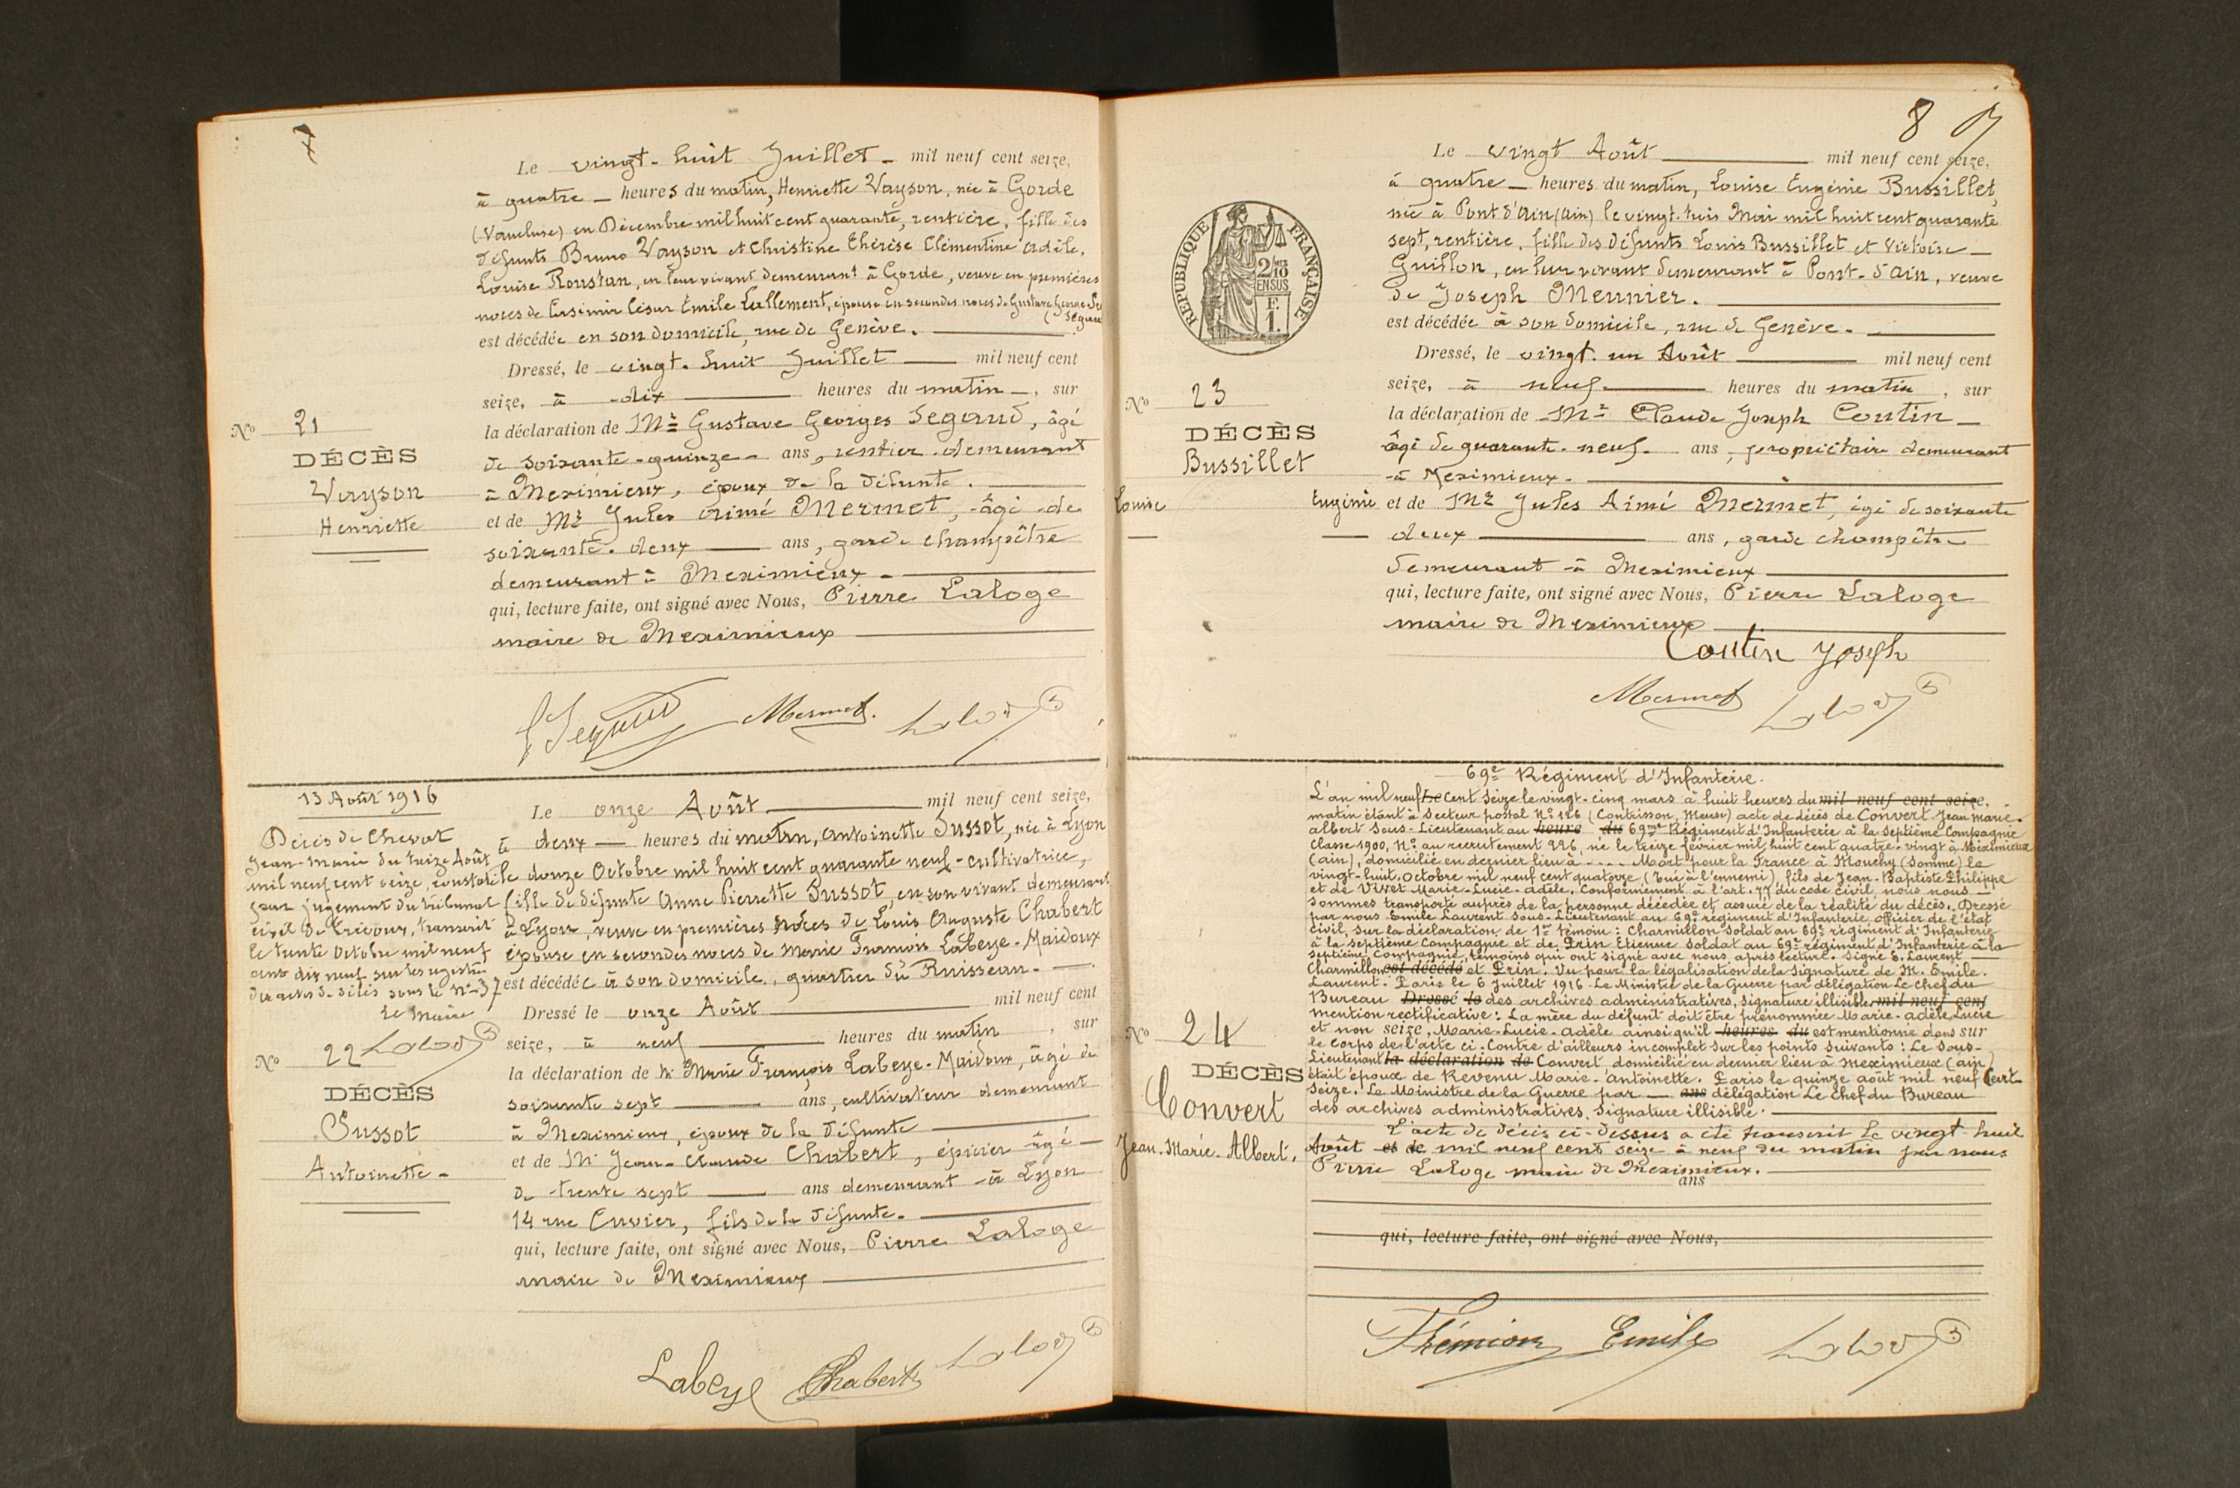 7
Le vingt-huit Juillet mil neuf cent seize,
à quatre heures du matin, Henriette Vayson, née à Gorde
(Vaucluse) en Décembre mil huit cent quarante, rentière, fille des
défunts Bruno Vayson et Christine Thérèse Clémentine Adèle,
Louise Roustan, en leur vivant demeurant à Gorde, veuve en premières
noces de Casimir César Emile Lallement, épouse en secondes noces de Gustave Georges
(Segaud
est décédée en son domicile, rue de Genève.
Dressé, le vingt-huit Juillet mil neuf cent
seize, à dix heures du matin, sur
la déclaration de Mr Gustave Georges Segaud, âgé
de soixante-quinze ans, rentier demeurant
à Meximieux, époux de la défunte.
et de Mr Jules Aimé Mermet, âgé de
soixante-deux ans, garde champêtre
demeurant à Meximieux
qui, lecture faite, ont signé avec Nous, Pierre Laloge
maire de Meximieux
No 21
DÉCÈS
Vayson
Henriette
Segaud Mermet Laloge
13 Août 1916
Décès de Chevat
Jean-Marie du treize Août
mil neuf cent seize, constaté
par jugement du tribunal
civil de Trévoux, transcrit
le trente Octobre mil neuf
cent dix neuf sur les registres
des actes de décès sous le No 37
Le Maire
Laloge
No 22
DÉCÈS
Sussot
Antoinette
Le onze Août mil neuf cent seize,
à deux heures du matin, Antoinette Sussot, née à Lyon
le douze Octobre mil huit cent quarante neuf, cultivatrice,
fille de défunte Anne Pierrette Sussot, en son vivant demeurant
à Lyon, veuve en premières noces de Louis Auguste Chabert
épouse en secondes noces de Marie François Labeye-Maidoux
est décédée à son domicile, quartier du Ruisseau.
Dressé le onze Août mil neuf cent
seize, à neuf heures du matin, sur
la déclaration de Mr Marie François Labeye-Maidoux, âgé de
soixante sept ans, cultivateur demeurant
à Meximieux, époux de la défunte
et de Mr Jean-Claude Chabert, épicier âgé
de trente sept ans demeurant à Lyon
14 rue Cuvier, fils de la défunte.
qui, lecture faite, ont signé avec Nous, Pierre Laloge
maire de Meximieux
Labeye Chabert Laloge
8
RÉPUBLIQUE FRANÇAISE
2/10
EN SUS
F.
1.
Le vingt Août mil neuf cent seize,
à quatre heures du matin, Louise Eugénie Bussillet,
née à Pont d'Ain (Ain) le vingt-trois Mai mil huit cent quarante
sept, rentière, fille des défunts Louis Bussillet et Victoire
Guillon, en leur vivant demeurant à Pont-d'Ain, veuve
de Joseph Meunier.
est décédée à son domicile, rue de Genève.
Dressé, le vingt-un Août mil neuf cent
seize, à neuf heures du matin, sur
la déclaration de Mr Claude Joseph Coutin
âgé de quarante-neuf ans, propriétaire demeurant
à Meximieux.
et de Mr Jules Aimé Mermet, âgé de soixante
deux ans, garde champêtre
demeurant à Meximieux
qui, lecture faite, ont signé avec Nous, Pierre Laloge
maire de Meximieux
No 23
DÉCÈS
Bussillet
Louise Eugénie
Coutin Joseph
Mermet Laloge
No 24
DÉCÈS
Convert
Jean-Marie-Albert.
69e Régiment d'Infanterie.
L'an mil neuf Le cent seize le vingt-cinq mars à huit heures du mil neuf cent seize,
matin étant à Secteur postal No 116 (Contrisson, Meuse) acte de décès de Convert Jean Marie.
Albert Sous-Lieutenant au heure du 69me Régiment d'Infanterie à la Septième Compagnie
Classe 1900, No au recrutement 996, né le treize février mil huit cent quatre-vingt à Meximieux
(Ain), domicilié en dernier lieu à .... Mort pour la France à Mouchy (Somme) le
vingt-huit Octobre mil neuf cent quatorze (Tué à l'ennemi), fils de Jean-Baptiste Philippe
et de Vivet Marie-Lucie-Adèle. Conformément à l'art. 77 du code civil, nous nous
sommes transporté auprès de la personne décédée et assuré de la réalité du décès. Dressé
par nous Emile Laurent Sous-Lieutenant au 69e régiment d'Infanterie, officier de l'état
civil, sur la déclaration de 1er témoin: Charmillon soldat au 69e régiment d'Infanterie
à la septième Compagnie et de Prin Etienne soldat au 69e régiment d'Infanterie à la
septième Compagnie, témoins qui ont signé avec nous après lecture. Signé E. Laurent
Charmillon est décédé et Prin. Vu pour la légalisation de la signature de M. Emile.
Laurent. Paris le 6 Juillet 1916. Le Ministre de la Guerre par délégation Le Chef du
Bureau Dressé le des archives administratives, signature illisible mil neuf cent
Mention rectificative: La mère du défunt doit être prénommée Marie-Adèle Lucie
et non seize, Marie-Lucie-Adèle ainsi qu'il heures du est mentionné dans sur
le corps de l'acte ci-contre d'ailleurs incomplet sur les points suivants: Le Sous-
Lieutenant la déclaration de Convert, domicilié en dernier lieu à Meximieux (Ain)
était époux de Revenu Marie-Antoinette. Paris le quinze août mil neuf cent
seize. Le Ministre de la Guerre par ans délégation Le Chef du Bureau
des archives administratives. Signature illisible.
L'acte de décès ci-dessus a été transcrit le vingt-huit
Août et de mil neuf cent seize à neuf du matin par nous
Pierre Laloge maire de Meximieux.
ans
qui, lecture faite, ont signé avec Nous,
Frémion Emile Laloge